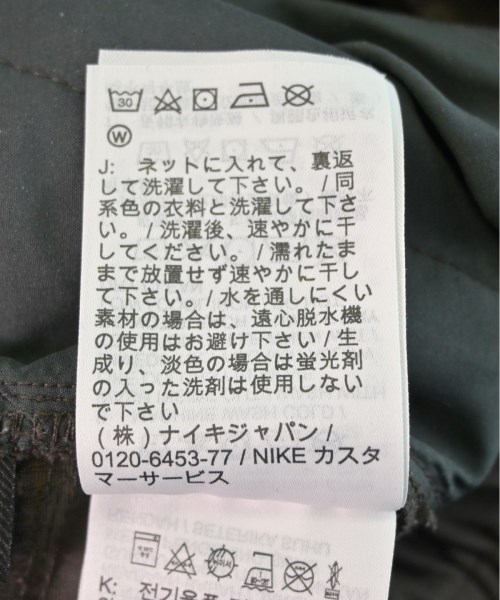 30
W
J: ネットに入れて、裏返
して洗濯して下さい。 / 同
系色の衣料と洗濯して下さ
い。 / 洗濯後、速やかに干
してください。 / 濡れたま
まで放置せず速やかに干し
て下さい。 / 水を通しにくい
素材の場合は、遠心脱水機
の使用はお避け下さい / 生
成り、淡色の場合は蛍光剤
の入った洗剤は使用しない
で下さい
(株) ナイキジャパン /
0120-6453-77 / NIKE カスタ
マーサービス
K: 전기용